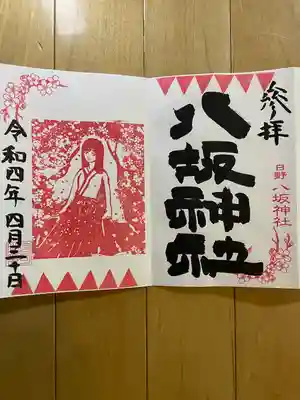 参拝
日野 八坂神社
八坂神社
令和四年 四月三十日